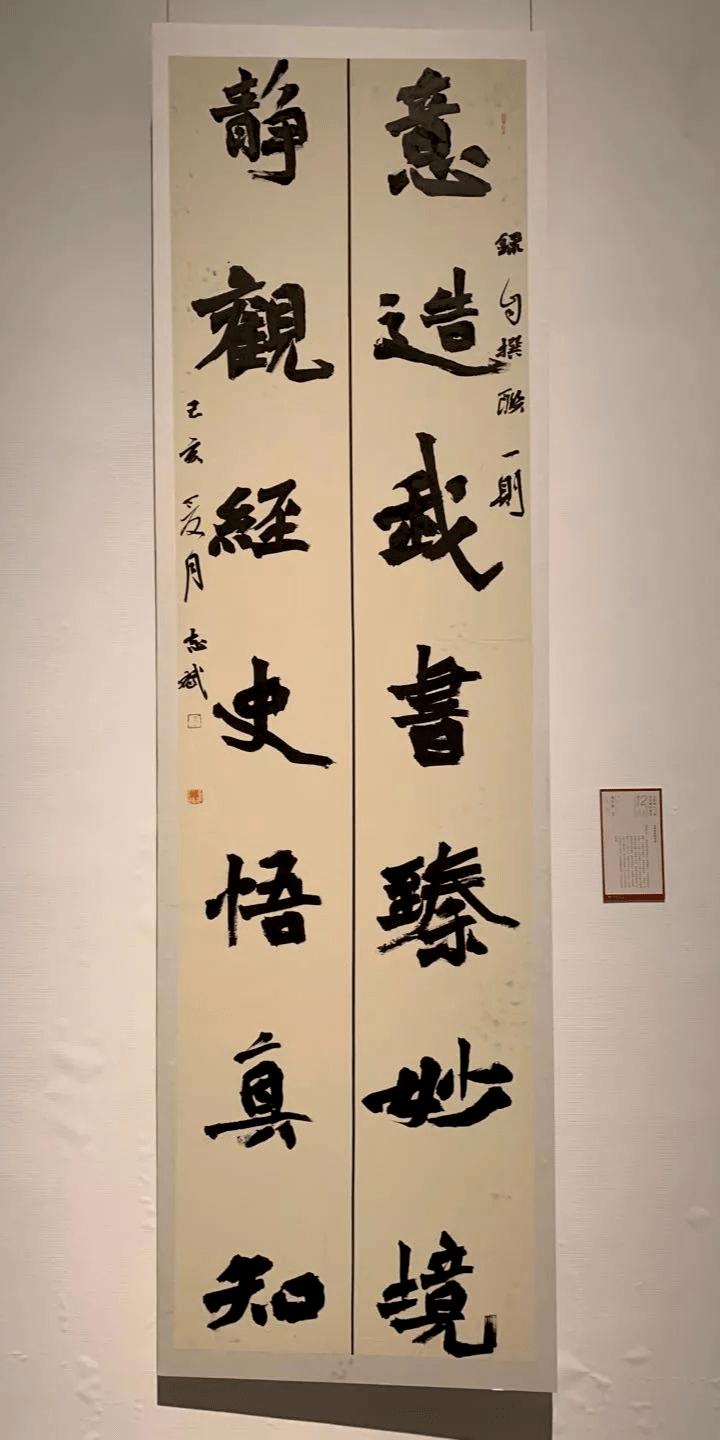 意造我書臻妙境
録自撰聯一則
靜觀經史悟真知
己亥夏月志斌